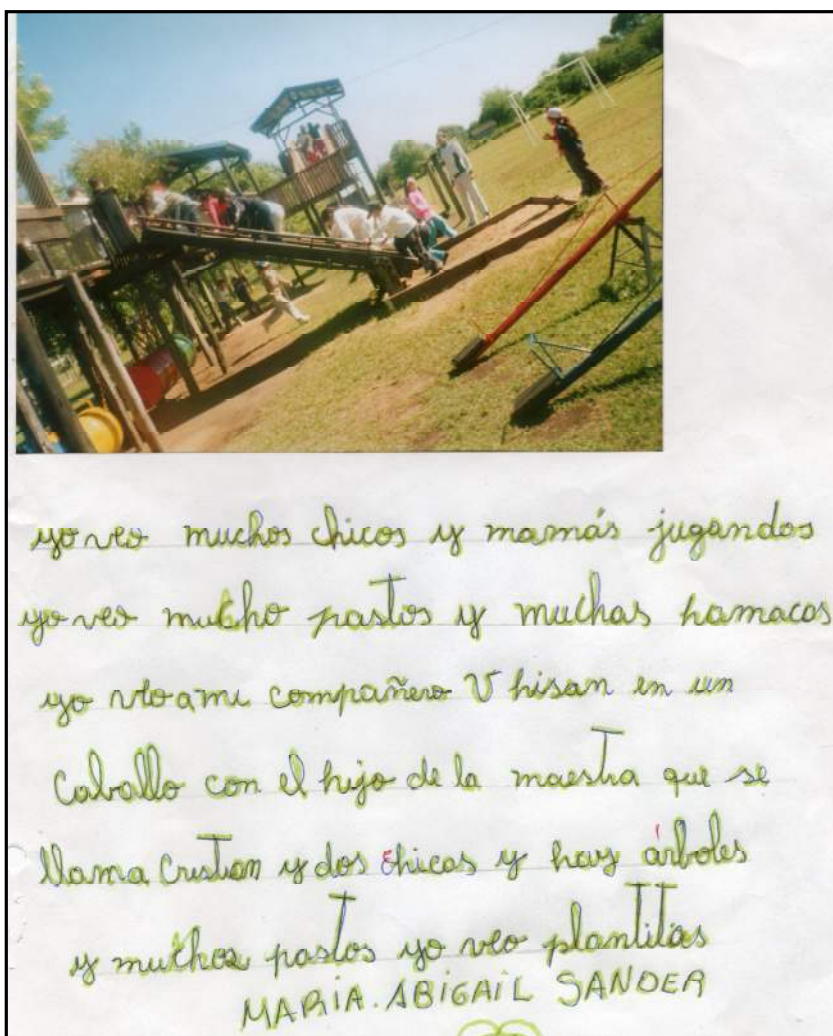 yo veo muchos chicos y mamás jugandos
yo veo mucho pastos y muchas hamacas
yo veo a mi compañero V hisan en un
Caballo con el hijo de la maestra que se
llama Cristian y dos chicas y hay árboles
y muchos pastos yo veo plantitas
MARIA. ABIGAIL SANDER